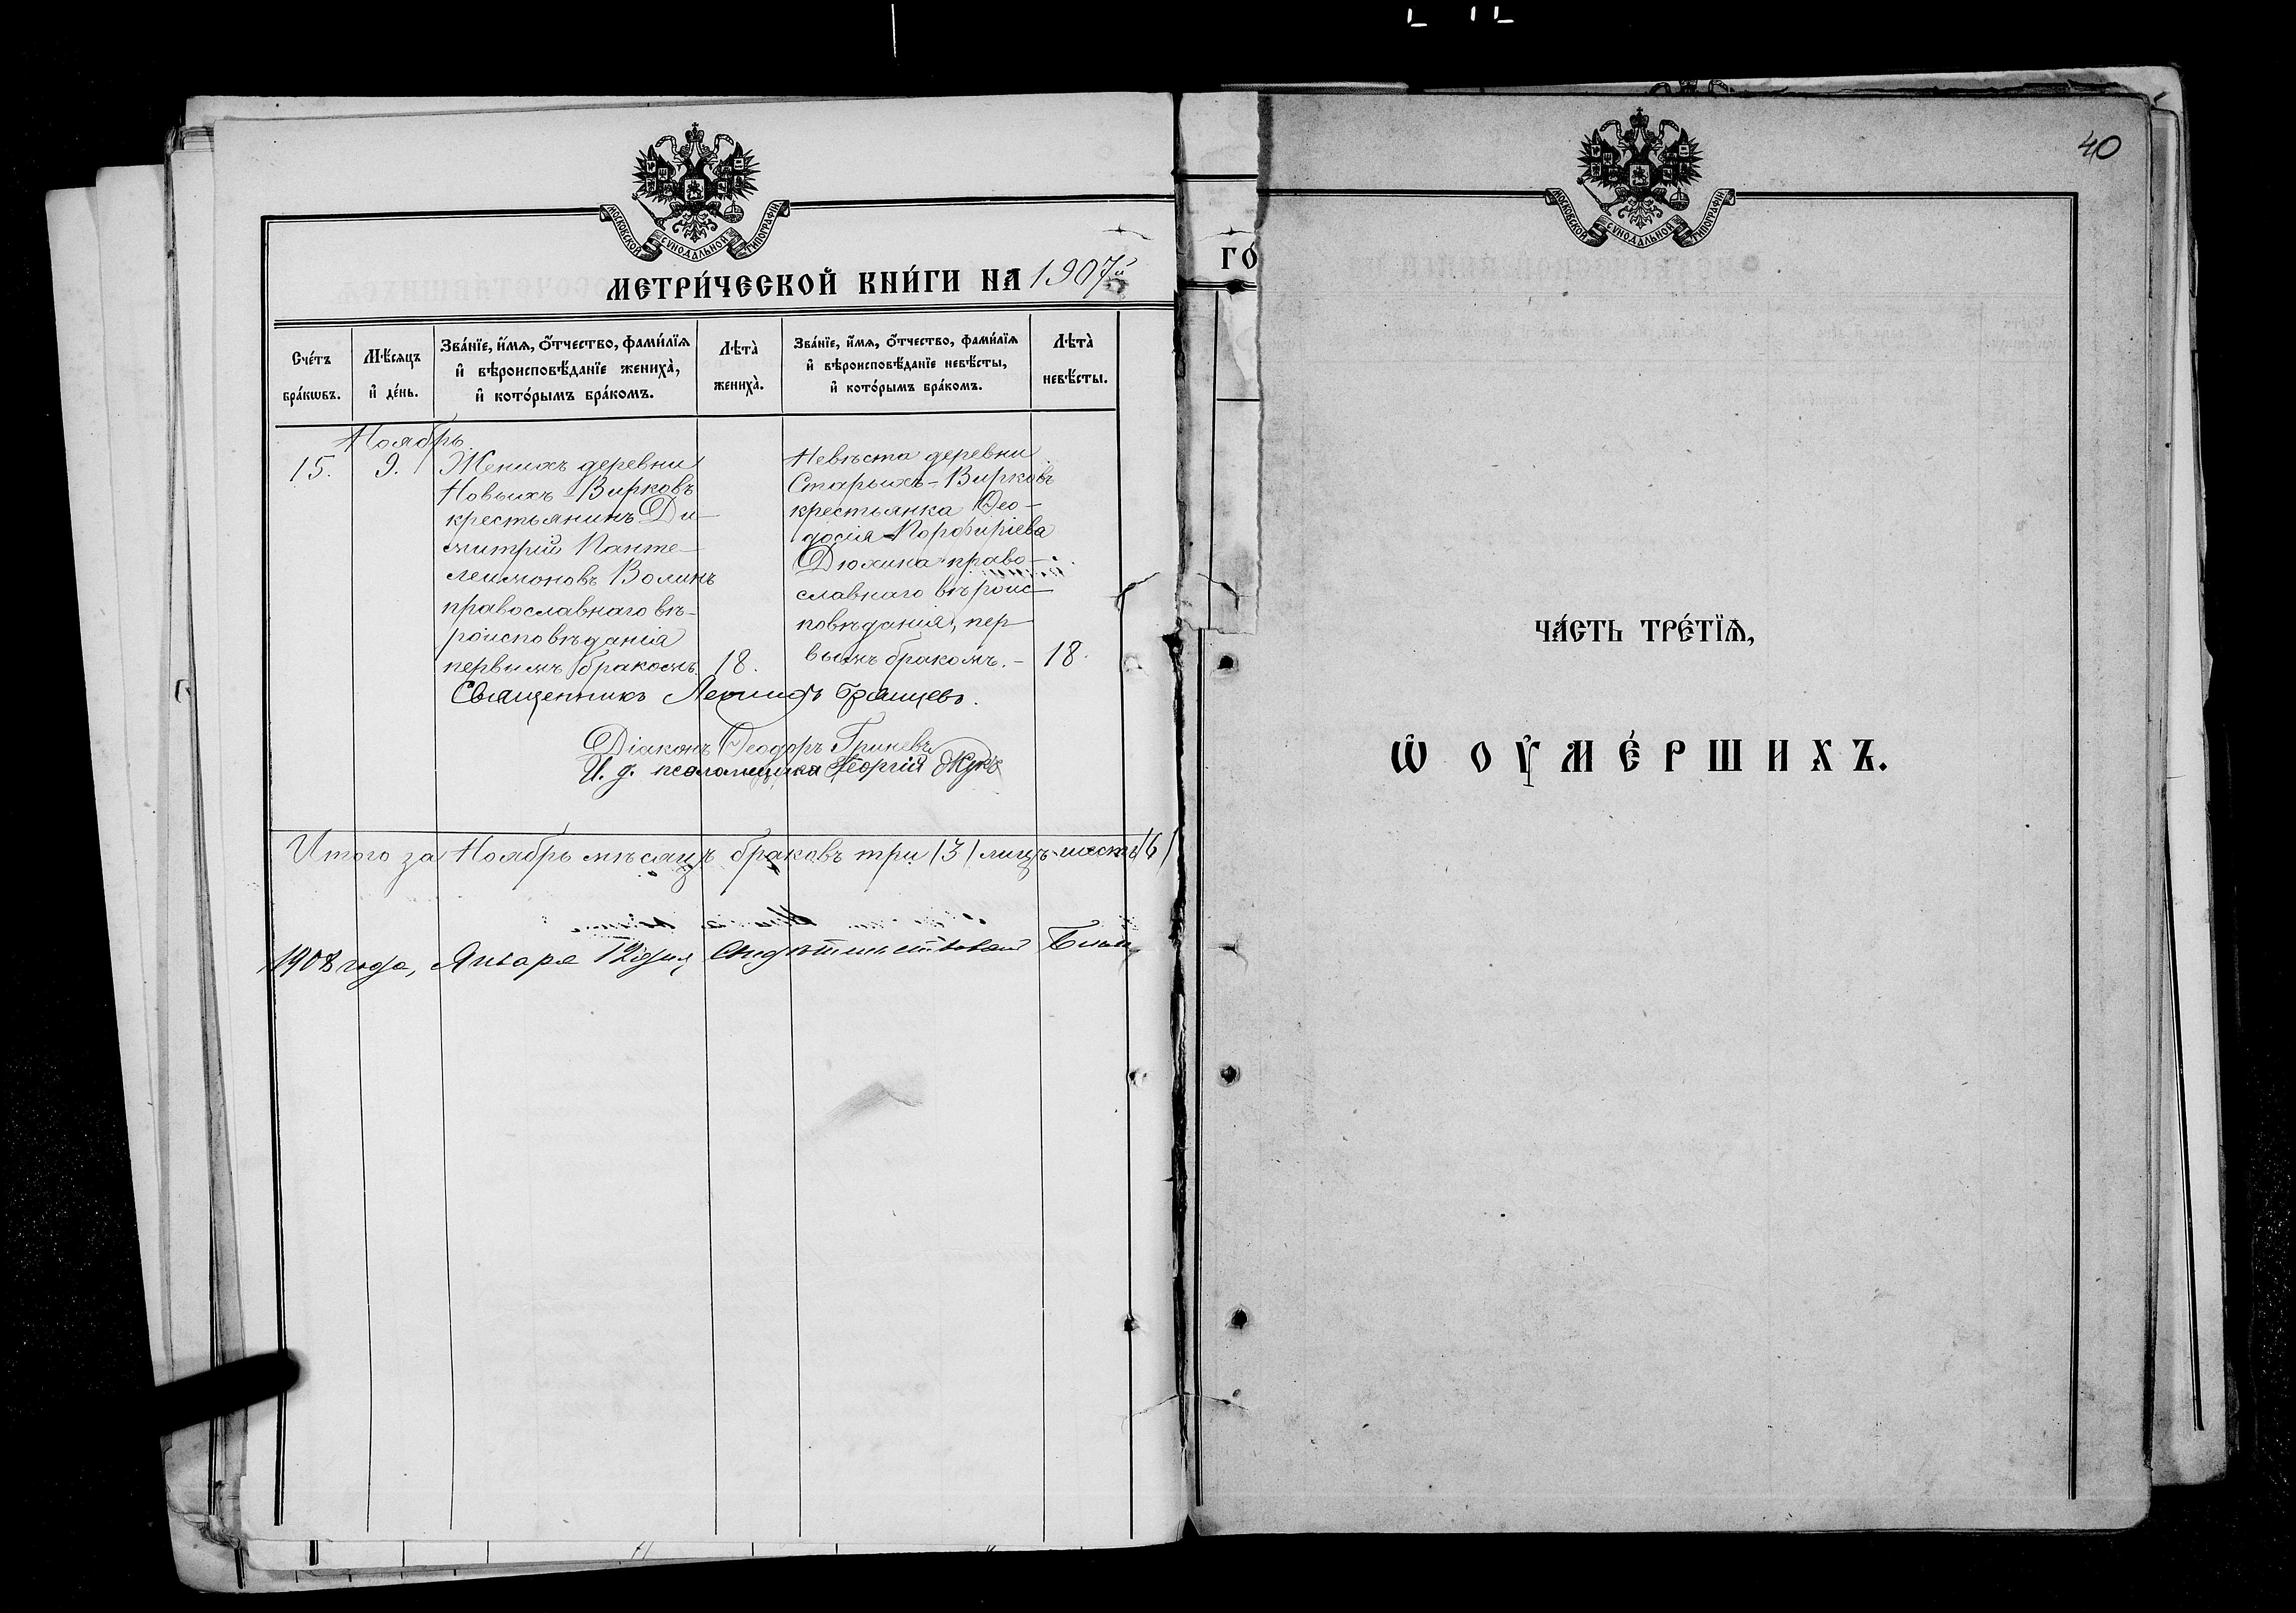 МОСКОВСКОЙ СѴНОДАЛЬНОЙ ТИПОГРАФІИ
МЕТРИ́ЧЕСКОЙ КНИ́ГИ НА 1907й
Сче́тъ бра́кѡвъ.
Мѣ́сяцъ и҆ де́нь.
Зва́нїе, и҆́мя, ѻ҆́тчество, фами́лїя
и҆ вѣроисповѣ́данїе жениха̀,
и҆ кото́рымъ бра́комъ.
Лѣта̀ жениха̀.
Зва́нїе, и҆́мя, ѻ҆́тчество, фами́лїя
и҆ вѣроисповѣ́данїе невѣ́сты,
и҆ кото́рымъ бра́комъ.
Лѣта̀ невѣ́сты.
Ноябрь
15. 9.
Женихъ деревни
Новыхъ-Вирковъ
крестьянинъ Ди-
митрій Панте-
леимоновъ Волинъ
православнаго вѣ-
роисповѣданія
первымъ бракомъ. 18.
Невѣста деревни
Старыхъ-Вирковъ
крестьянка Ѳео-
досія Порфиріева
Дюхина право-
славнаго вѣроис-
повѣданія, пер
вымъ бракомъ.- 18.
Священникъ Леонидъ
Діаконъ Ѳеодоръ Гриневъ
И. д. псаломщика Георгій Жукъ
Итого за Ноябрь мѣсяцъ браковъ три /3/ лицъ шесть /6/
1908 года, Января 12 дня,
ГО
40
МОСКОВСКОЙ СѴНОДАЛЬНОЙ ТИПОГРАФІИ
ЧА́СТЬ ТРЕ́ТЇѦ,
Ѡ҆ ОУ҆МЕ́РШИХЪ.